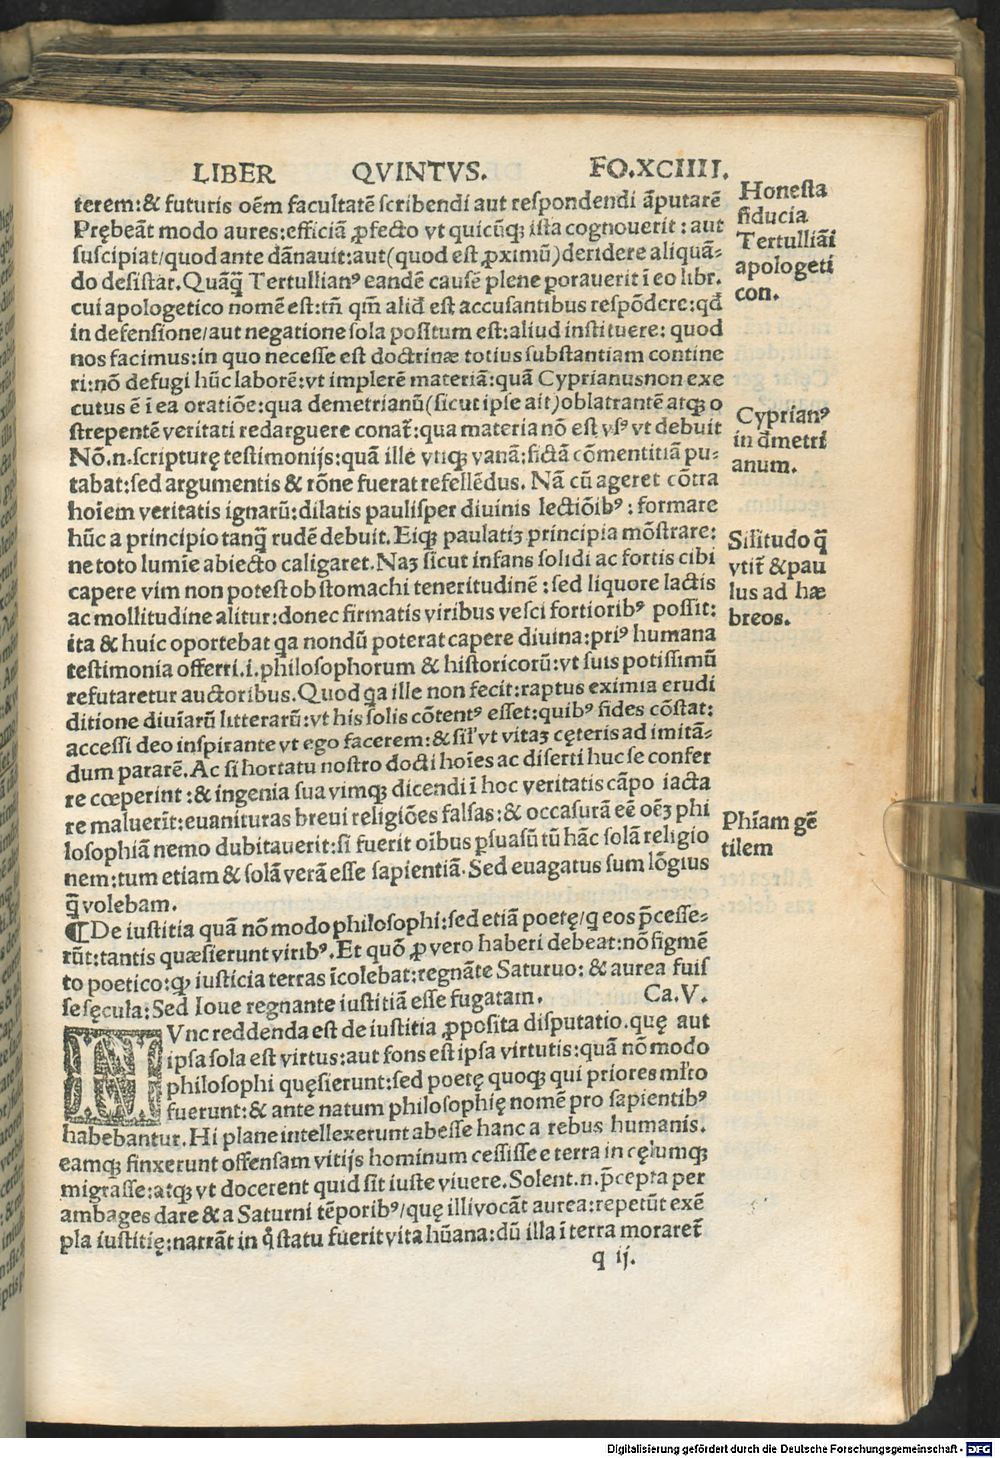 LIBER QVINTVS. FO.XCIIII.
terem:& futuris oēm facultatē scribendi aut respondendi āputarē
Prębeāt modo aures:efficiā ꝓfecto vt quicūqꝫ ista cognouerit : aut
suscipiat/quod ante dānauit:aut(quod est ꝓximū)deridere aliquā-
do desistat.Quāq̄ Tertullianꝰ eandē causē plene porauerit ī eo libr.
cui apologetico nomē est:tn̄ qm̄ aliđ est accusantibus respōdere:qđ
in defensione/aut negatione sola positum est:aliud instituere: quod
nos facimus:in quo necesse est doctrinæ totius substantiam contine
ri:nō defugi hūc laborē:vt implerē materiā:quā Cyprianusnon exe
cutus ē ī ea oratiōe:qua demetrianū(sicut ipse ait)oblatrantē atqꝫ o
strepentē veritati redarguere conat̄:qua materia nō est vsꝰ vt debuit
Nō.n.scripturę testimonijs:quā ille vtiqꝫ vanā:fictā cōmentitiā pu-
tabat:sed argumentis & rōne fuerat refellēdus. Nā cū ageret cōtra
hoīem veritatis ignarū:dilatis paulisper diuinis lectiōibꝰ: formare
hūc a principio tanq̄ rudē debuit.Eiqꝫ paulatiꝫ principia mōstrare:
ne toto lumīe abiecto caligaret.Naꝫ sicut infans solidi ac fortis cibi
capere vim non potest ob stomachi teneritudinē : sed liquore lactis
ac mollitudine alitur:donec firmatis viribus vesci fortioribꝰ possit:
ita & huic oportebat qa nondū poterat capere diuina:priꝰ humana
testimonia offerri.i.philosophorum & historicorū:vt suis potissimū
refutaretur auctoribus.Quod qa ille non fecit:raptus eximia erudi
ditione diuīarū litterarū:vt his solis cōtentꝰ esset:quibꝰ fides cōstat:
accessi deo inspirante vt ego facerem:& sil' vt vitaꝫ cęteris ad imitā-
dum pararē.Ac si hortatu nostro docti hoīes ac diserti huc se confer
re cœperint :& ingenia sua vimqꝫ dicendi ī hoc veritatis cāpo iacta
re maluerīt:euanituras breui religiōes falsas:& occasurā eē oēꝫ phi
losophiā nemo dubitauerit:si fuerit oībus ꝑsuasū tū hāc solā religio
nem:tum etiam & solā verā esse sapientiā. Sed euagatus sum lōgius
q̄ volebam.
¶De iustitia quā nō modo philosophi:sed etiā poetę/q eos p̄cesse-
rūt:tantis quæsierunt viribꝰ.Et quō ꝓ vero haberi debeat:nō figmē
to poetico:ꝙ iusticia terras īcolebat:regnāte Saturuo: & aurea fuis
se sęcula:Sed Ioue regnante iustitiā esse fugatam. Ca.V.
NVnc reddenda est de iustitia ꝓposita disputatio.quę aut
ipsa sola est virtus:aut fons est ipsa virtutis:quā nō modo
philosophi quęsierunt:sed poetę quoqꝫ qui priores mlto
fuerunt:& ante natum philosophię nomē pro sapientibꝰ
habebantur.Hi plane intellexerunt abesse hanc a rebus humanis.
eamqꝫ finxerunt offensam vitijs hominum cessisse e terra in cęlumqꝫ
migrasse:atqꝫ vt docerent quid sit iuste viuere.Solent.n.p̄cepta per
ambages dare & a Saturni tēporibꝰ/quę illi vocāt aurea:repetūt exē
pla iustitię:narrāt in q̊ statu fuerit vita hūana:dū illa ī terra moraret̄
q ij.
Honesta
fiducia
Tertulliāi
apologeti
con.
Cyprianꝰ
in dmetri
anum.
Silitudo q̄
vtit̄ & pau
lus ad hæ
breos.
Phīam gē
tilem
Digitalisierung gefördert durch die Deutsche Forschungsgemeinschaft - DFG